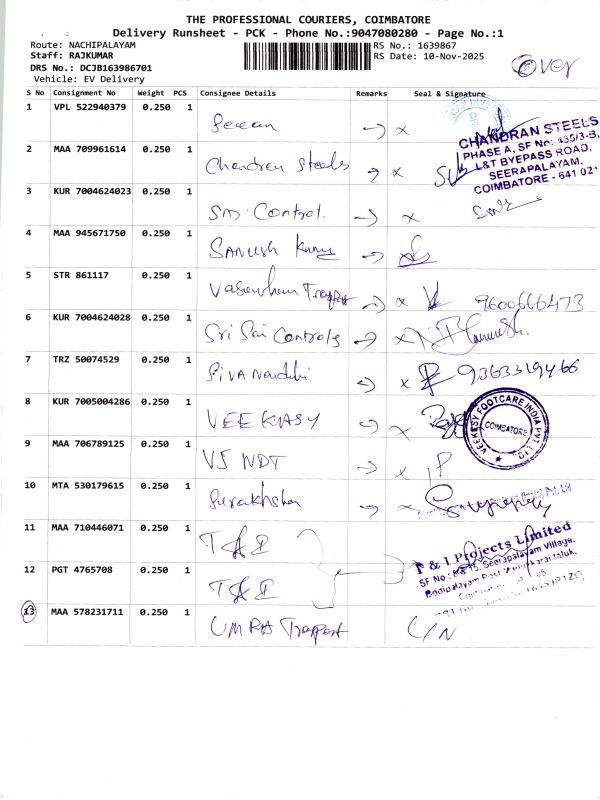 THE PROFESSIONAL COURIERS, COIMBATORE
Delivery Runsheet - PCK - Phone No.:9047080280 - Page No.:1
Route: NACHIPALAYAM
RS No.: 1639867
Staff: RAJKUMAR
RS Date: 10-Nov-2025
DRS No.: DCJB163986701
Vehicle: EV Delivery
Over
S No Consignment No Weight PCS Consignee Details Remarks Seal & Signature
1 VPL 522940379 0.250 1
2 MAA 709961614 0.250 1 Chandran Steels
CHANDRAN STEELS
PHASE A, SF No: 435/3-B,
L&T BYEPASS ROAD,
SEERAPALAYAM,
COIMBATORE - 641 021
3 KUR 7004624023 0.250 1 Control.
4 MAA 945671750 0.250 1
5 STR 861117 0.250 1 9600666473
6 KUR 7004624028 0.250 1 Sri Sai Controls
7 TRZ 50074529 0.250 1 9363319466
8 KUR 7005004286 0.250 1 VEEKAY
VEEKESY FOOTCARE INDIA PVT. LTD.
COIMBATORE
9 MAA 706789125 0.250 1 VJ NDT
10 MTA 530179615 0.250 1
11 MAA 710446071 0.250 1 T & I
12 PGT 4765708 0.250 1 T & I
T & I Projects Limited
Seerapalayam Village,
13 MAA 578231711 0.250 1 UMRA